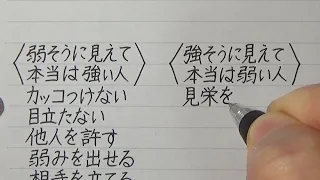 〈弱そうに見えて
本当は強い人〉
カッコつけない
目立たない
他人を許す
弱みを出せる
相手を立てる
〈強そうに見えて
本当は弱い人〉
見栄を